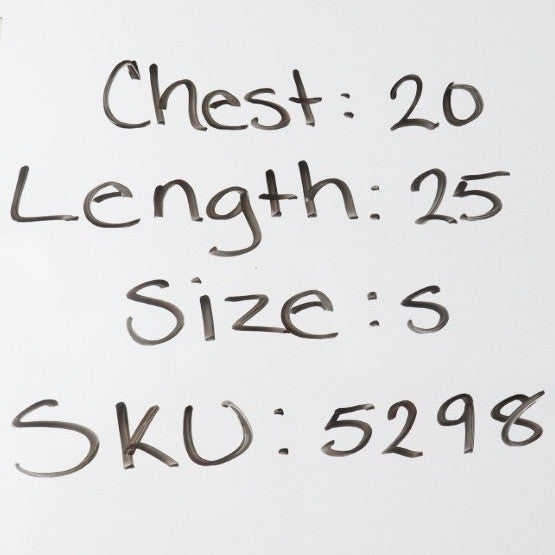 Chest: 20
Length: 25
Size: S
SKU: 5298